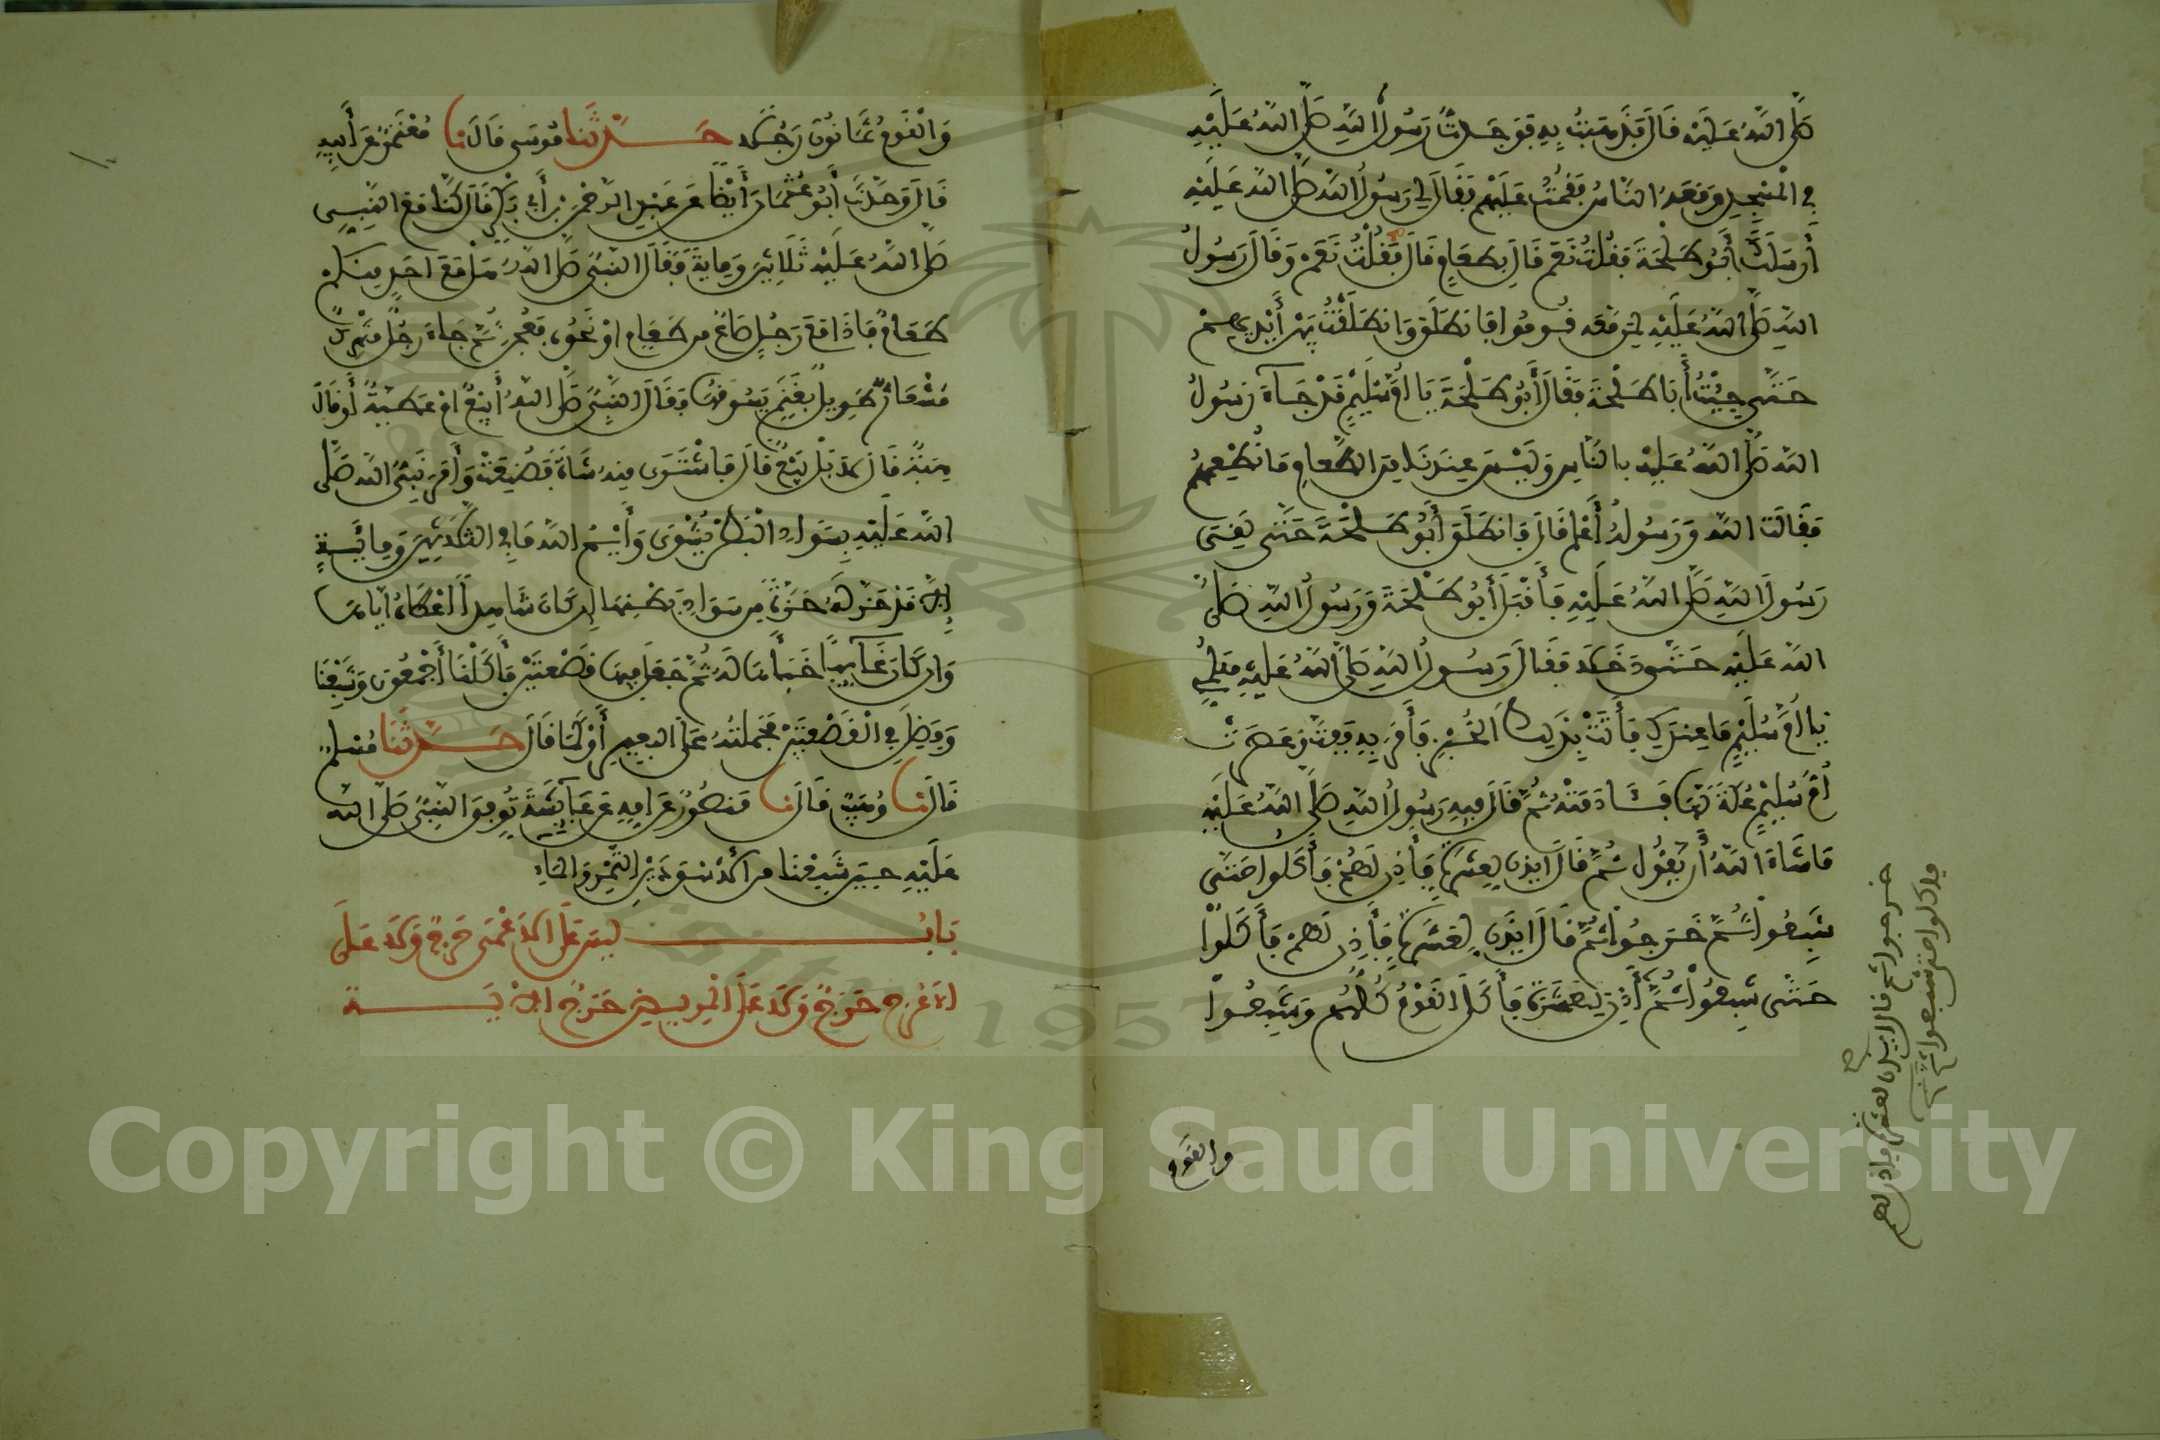 صلى الله عليه قال فذهبت به فوجدت رسول الله صلى الله عليه
في المسجد ومعه الناس فقمت عليهم فقال لي رسول الله صلى الله عليه
أرسلك أبو طلحة فقلت نعم قال بطعام قال فقلت نعم وقال رسول
الله صلى الله عليه لمن معه قوموا فانطلق وانطلقت بين أيديهم
حتى جئت أبا طلحة فقال أبو طلحة يا أم سليم قد جاء رسول
الله صلى الله عليه بالناس وليس عندنا من الطعام ما نطعمهم
فقالت الله ورسوله أعلم قال فانطلق أبو طلحة حتى لقي
رسول الله صلى الله عليه فأقبل أبو طلحة ورسول الله صلى
الله عليه حتى دخلا فقال رسول الله صلى الله عليه هلمي
يا أم سليم ما عندك فأتت بذلك الخبز فأمر به ففت وعصرت
أم سليم عكة لها فأدمته ثم قال فيه رسول الله صلى الله عليه
ما شاء الله أن يقول ثم قال ائذن لعشرة فأذن لهم فأكلوا حتى
شبعوا ثم خرجوا ثم قال ائذن لعشرة فأذن لهم فأكلوا
حتى شبعوا ثم أذن لعشرة فأكل القوم كلهم وشبعوا
خرجوا ثم قال ائذن لعشرة فأذن لهم
فأكلوا حتى شبعوا ثم
والقوم
والقوم ثمانون رجلا حدثنا موسى قال نا معتمر عن أبيه
قال وحدث أبو عثمان أيضا عن عبد الرحمن بن أبي بكر قال كنا مع النبي
صلى الله عليه ثلاثين ومائة فقال النبي صلى الله هل مع أحد منكم
طعام فإذا مع رجل صاع من طعام أو نحوه فعجن ثم جاء رجل مشرك
مشعان طويل بغنم يسوقها فقال النبي صلى الله أبيع أم عطية أو قال
هبة قال لا بل بيع قال فاشترى منه شاة فصنعت وأمر نبي الله صلى
الله عليه بسواد البطن يشوى وأيم الله ما في الثلاثين ومائة
إلا قد حز له حزة من سواد بطنها إن كان شاهدا أعطاه إياها
وإن كان غائبا خبأها له ثم جعل فيها قصعتين فأكلنا أجمعون وشبعنا
وفضل في القصعتين فحملته على البعير أو كما قال حدثنا مسلم
قال نا وهيب قال نا منصور عن أمه عن عائشة توفي النبي صلى الله
عليه حين شبعنا من الأسودين التمر والماء
باب ليس على الأعمى حرج ولا على
الأعرج حرج ولا على المريض حرج الآية
1957
Copyright © King Saud University